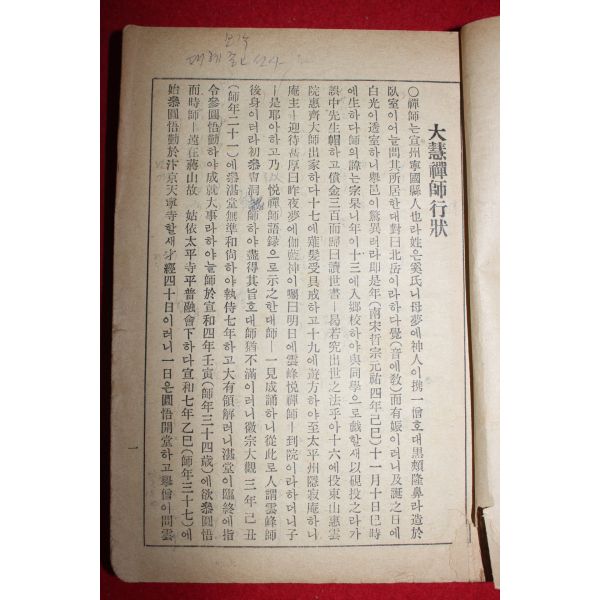 보각
대혜종고 선사
大慧禪師行狀
○禪師는宣州寧國縣人也라姓은奚氏니母夢에神人이携一僧호대黑頰隆鼻라造於
臥室이어늘問其所居한대對曰北岳이라하다覺(音에敎)而有娠이러니及誕之日에
白光이透室하니擧邑이驚異러라即是年(南宋哲宗元祐四年己巳)十一月十日巳時
에生하다師의諱는宗杲니年이十三에入鄕校하야與同學으로戱할새以硯投之라가
誤中先生帽하고償金三百而歸曰讀世書ㅣ曷若究出世之法乎아十六에投東山惠雲
院惠齊大師出家하다十七에薙髮受具戒하고十九에遊方하야至太平州隱寂庵하니
庵主ㅣ迎待甚厚曰昨夜夢에伽藍神이囑曰明日에雲峰悅禪師ㅣ到院이라하더니子
ㅣ是耶아하고乃以悅禪師語錄으로示之한대師ㅣ一見成誦하니從此로人謂雲峰師
後身이러라初參曹洞師하야盡得其旨호대師猶不滿이러니徽宗大觀三年己丑
(師年二十一)에參湛堂無準和尙하야執侍七年하고大有領解러니湛堂이臨終에指
令參圓悟勤하야成就大事라하야늘師於宣和四年壬寅(師年三十四歲)에欲參圓悟
而時師ㅣ遠在蔣山故 姑依太平寺平普融會下하다宣和七年乙巳(師年三十七)에
始參圓悟勤於汴京天寧寺할새才經四十日이러니一日은圓悟開堂하고擧僧이問雲
一